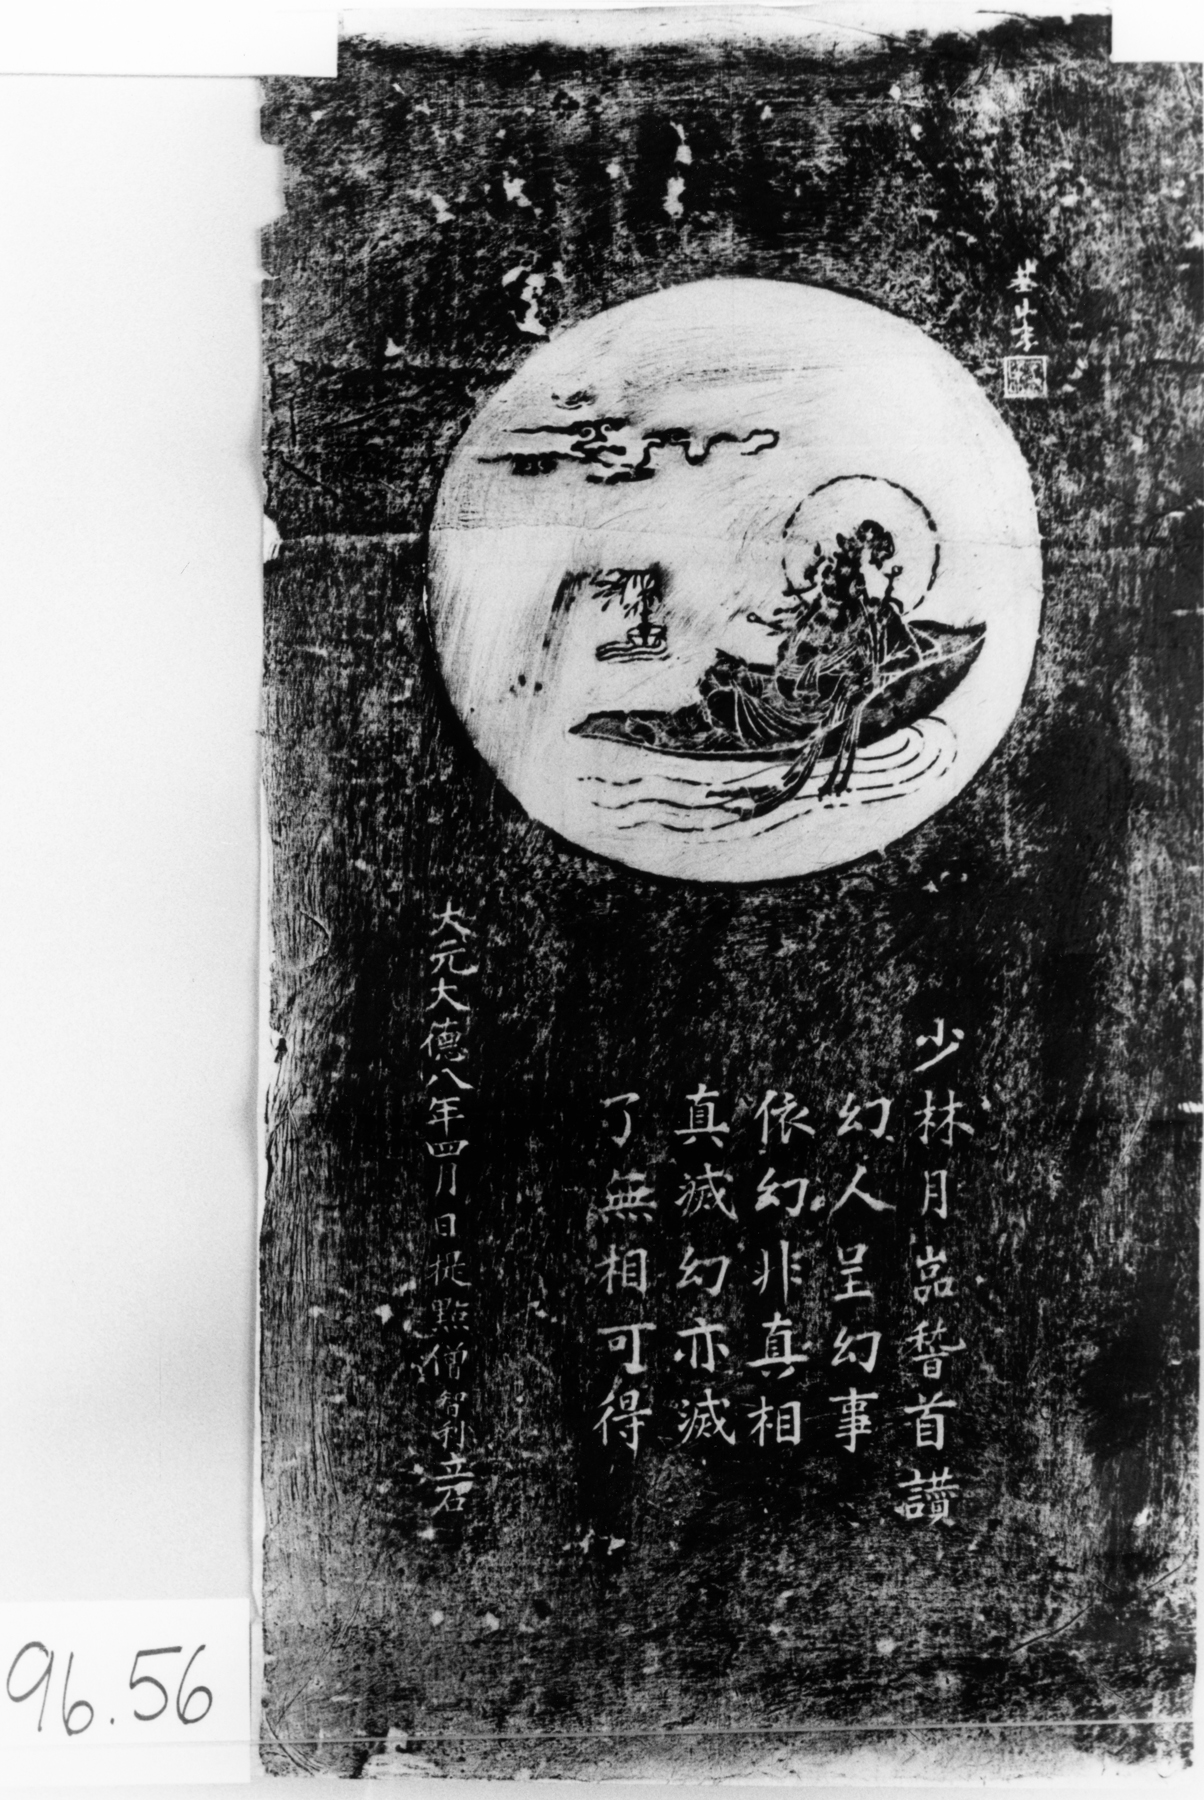 少林月嵓稽首讚
幻人呈幻事
依幻非真相
真滅幻亦滅
了無相可得
大元大德八年四月日提點僧智利立石
96.56